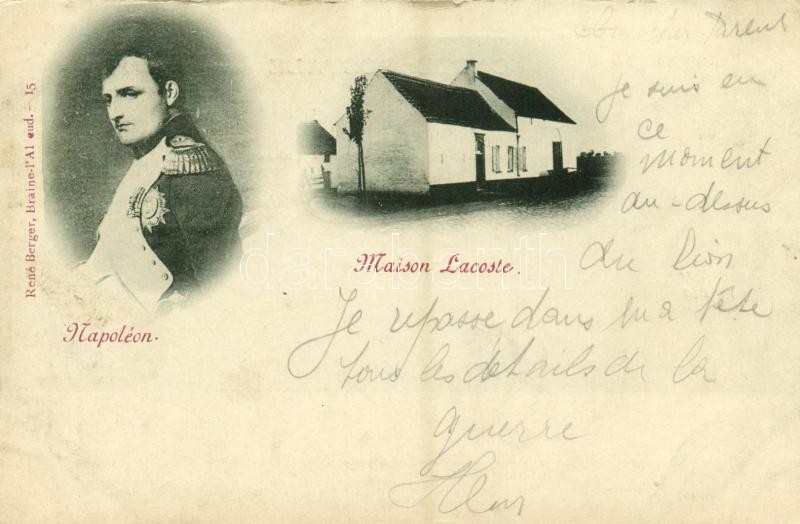 Parent
Je suis en
ce
moment
au-dessus
du Lion
Je repasse dans ma tête
tous les details de la
guerre
Maison Lacoste.
Napoléon.
René Berger, Braine-l'Al eud. - 15
darabanth